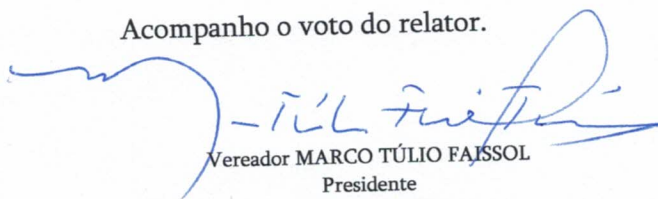 Acompanho o voto do relator.
Vereador MARCO TÚLIO FAISSOL
Presidente